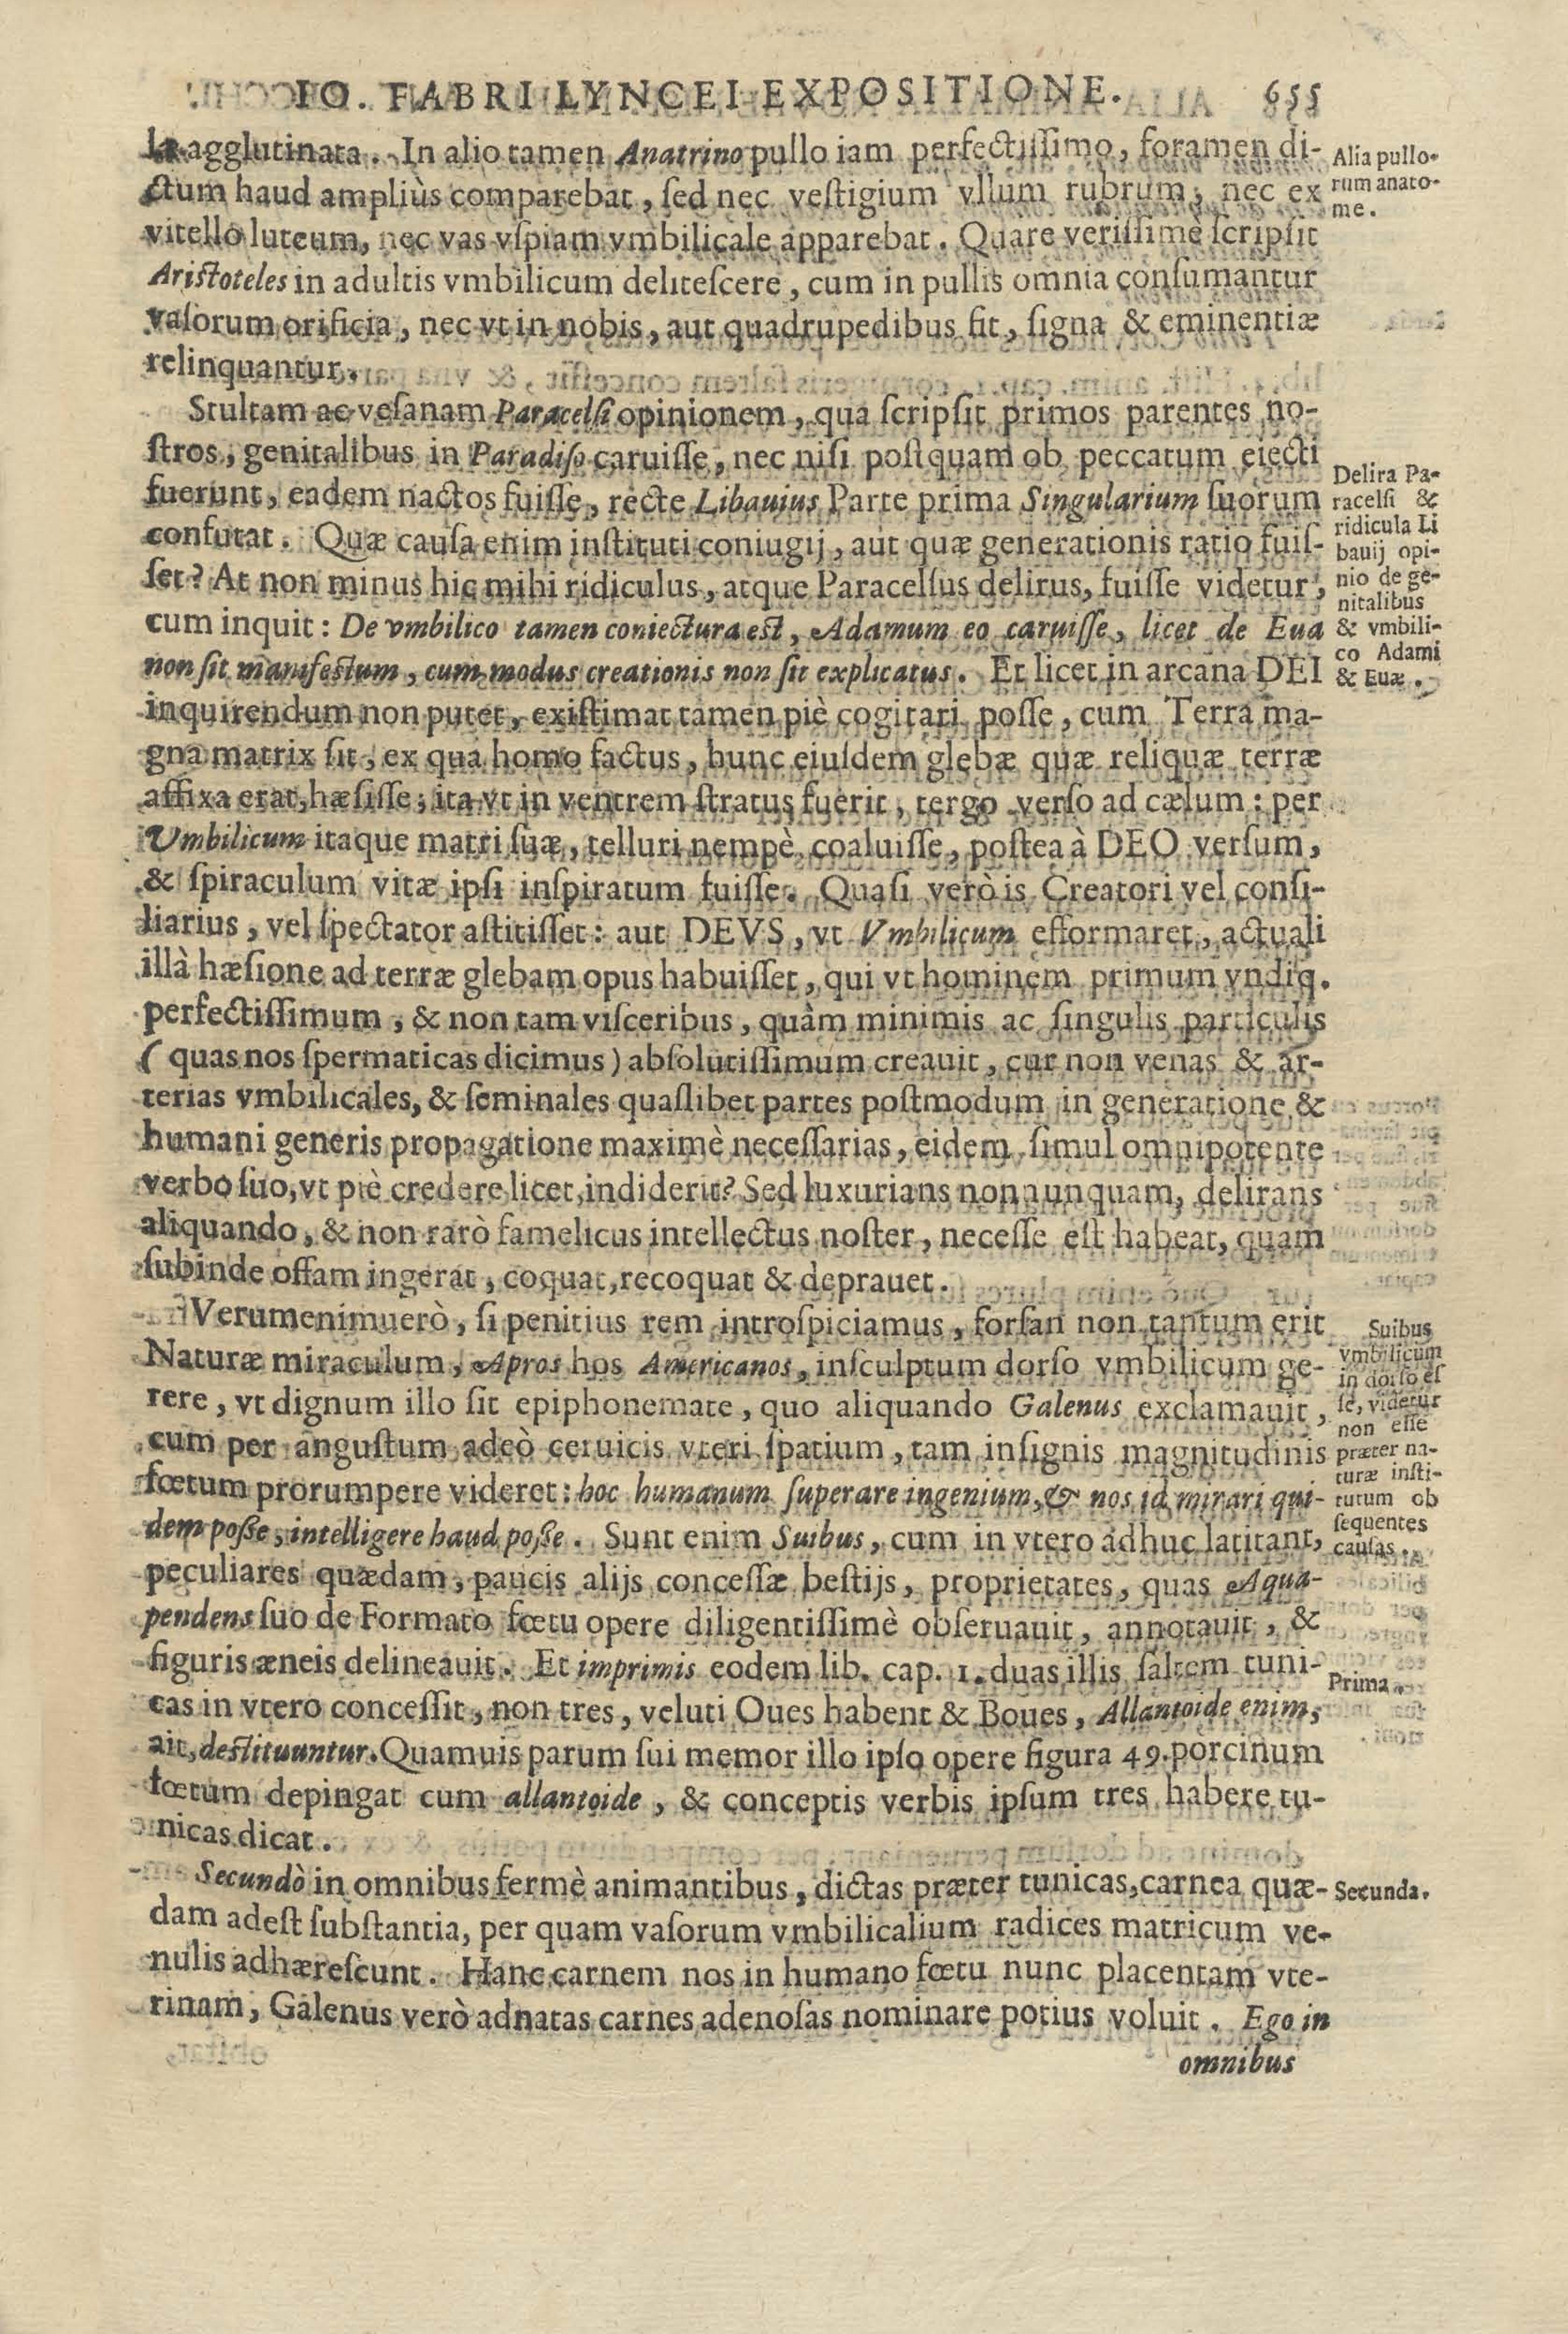 IO. FABRI LYNCEI EXPOSITIONE. 655
la agglutinata. In alio tamen Anatrino pullo iam perfectiſſimo, foramen di-
ctum haud ampliùs comparebat, ſed nec veſtigium vllum rubrum, nec ex
vitello luteum, nec vas vſpiam vmbilicale apparebat. Quare veriſſimè ſcripſit
Ariſtoteles in adultis vmbilicum deliteſcere, cum in pullis omnia conſumantur
vaſorum orificia, nec vt in nobis, aut quadrupedibus fit, ſigna & eminentiæ
relinquantur.
Alia pullo-
rum anato-
me.
Stultam ac veſanam Paracelſi opinionem, qua ſcripſit primos parentes no-
ſtros, genitalibus in Paradiſo caruiſſe, nec niſi poſtquam ob peccatum eiecti
fuerunt, eadem nactos fuiſſe, rectè Libauius Parte prima Singularium ſuorum
confutat. Quæ cauſa enim inſtituti coniugij, aut quæ generationis ratio fuiſ-
ſet? At non minus hic mihi ridiculus, atque Paracelſus delirus, fuiſſe videtur,
cum inquit: De vmbilico tamen coniectura eſt, Adamum eo caruiſſe, licet de Eua
non ſit manifeſtum, cum modus creationis non ſit explicatus. Et licet in arcana DEI
inquirendum non putet, exiſtimat tamen piè cogitari poſſe, cum Terra ma-
gna matrix ſit, ex qua homo factus, hunc eiuſdem glebæ quæ reliquæ terræ
affixa erat, hæſiſſe; ita vt in ventrem ſtratus fuerit, tergo verſo ad cælum: per
Vmbilicum itaque matri ſuæ, telluri nempè coaluiſſe, poſtea à DEO verſum,
& ſpiraculum vitæ ipſi inſpiratum fuiſſe. Quaſi verò is Creatori vel conſi-
liarius, vel ſpectator aſtitiſſet: aut DEVS, vt Vmbilicum efformaret, actuali
illà hæſione ad terræ glebam opus habuiſſet, qui vt hominem primum vndiq.
perfectiſſimum, & non tam viſceribus, quàm minimis ac ſingulis particulis
(quas nos ſpermaticas dicimus) abſolutiſſimum creauit, cur non venas & ar-
terias vmbilicales, & ſeminales quaſlibet partes poſtmodum in generatione &
humani generis propagatione maximè neceſſarias, eidem ſimul omnipotente
verbo ſuo, vt piè credere licet, indiderit? Sed luxurians nonnunquam, delirans
aliquando, & non rarò famelicus intellectus noſter, neceſſe eſt habeat, quam
ſubinde offam ingerat, coquat, recoquat & deprauet.
Delira Pa-
racelſi &
ridicula Li
bauij opi-
nio de ge-
nitalibus
& vmbili-
co Adami
& Euæ.
Verumenimuerò, ſi penitius rem introſpiciamus, forſan non tantum erit
Naturæ miraculum, Apros hos Americanos, inſculptum dorſo vmbilicum ge-
rere, vt dignum illo ſit epiphonemate, quo aliquando Galenus exclamauit,
cum per anguſtum adeò ceruicis vteri ſpatium, tam inſignis magnitudinis
fœtum prorumpere videret: hoc humanum ſuperare ingenium, & nos id mirari qui-
dem poſſe, intelligere haud poſſe. Sunt enim Suibus, cum in vtero adhuc latitant,
peculiares quædam, paucis alijs conceſſæ beſtijs, proprietates, quas Aqua-
pendens ſuo de Formato fœtu opere diligentiſſimè obſeruauit, annotauit, &
figuris æneis delineauit. Et imprimis eodem lib. cap. 1. duas illis ſaltem tuni-
cas in vtero conceſſit, non tres, veluti Oues habent & Boues, Allantoide enim,
ait, deſtituuntur. Quamuis parum ſui memor illo ipſo opere figura 49. porcinum
fœtum depingat cum allantoide, & conceptis verbis ipſum tres habere tu-
nicas dicat.
Suibus
vmbilicum
in dorſo eſ
ſe, videtur
non eſſe
præter na-
turæ inſti-
tutum ob
ſequentes
cauſas.
Prima.
Secundò in omnibus fermè animantibus, dictas præter tunicas, carnea quæ-
dam adeſt ſubſtantia, per quam vaſorum vmbilicalium radices matricum ve-
nulis adhæreſcunt. Hanc carnem nos in humano fœtu nunc placentam vte-
rinam, Galenus verò adnatas carnes adenoſas nominare potius voluit. Ego in
Secunda.
omnibus